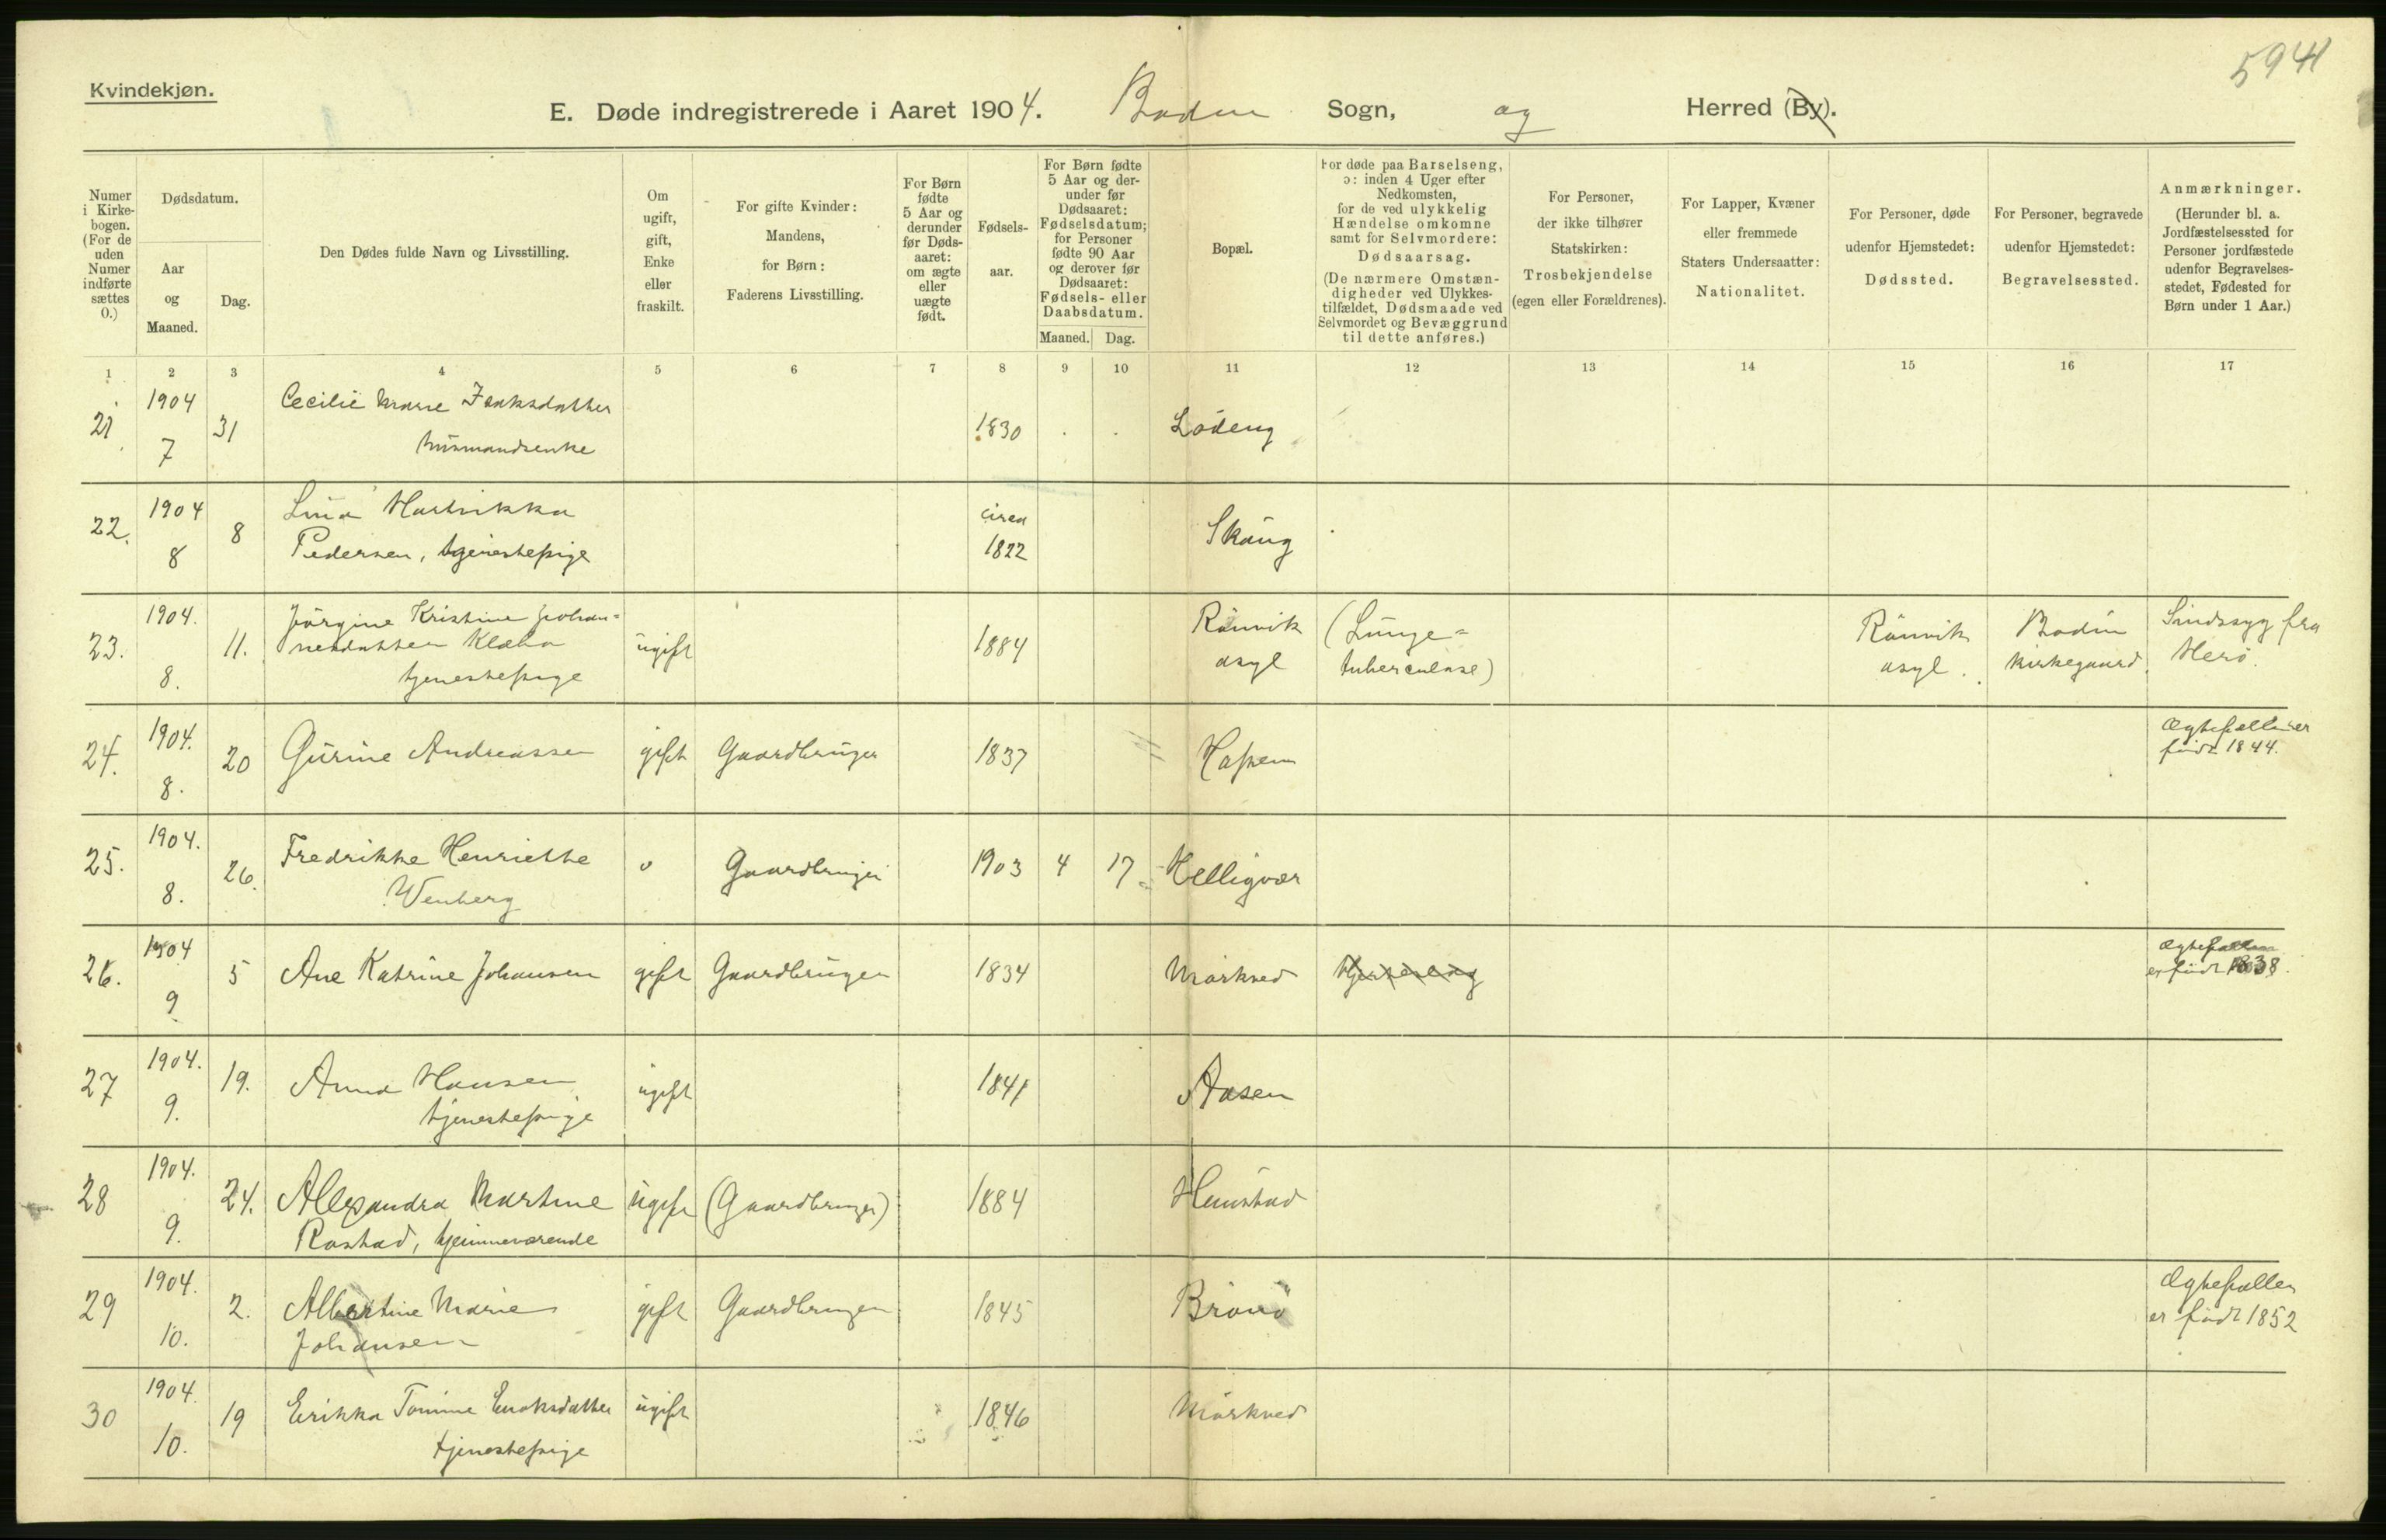 5941
Kvindekjøn.
E. Døde indregistrerede i Aaret 1904. Bodin Sogn, og Herred (By).
Numer i Kirke-bogen. (For de uden Numer indførte sættes 0.)
Dødsdatum.
Aar og Maaned.
Dag.
Den Dødes fulde Navn og Livsstilling.
Om ugift, gift, Enke eller fraskilt.
For gifte Kvinder: Mandens, for Børn: Faderens Livsstilling.
For Børn fødte 5 Aar og derunder før Døds-aaret: om ægte eller uægte født.
Fødsels-aar.
For Børn fødte 5 Aar og der-under før Dødsaaret: Fødselsdatum; for Personer fødte 90 Aar og derover før Dødsaaret: Fødsels- eller Daabsdatum.
Maaned. Dag.
Bopæl.
For døde paa Barselseng, ɔ: inden 4 Uger efter Nedkomsten, for de ved ulykkelig Hændelse omkomne samt for Selvmordere: Dødsaarsag. (De nærmere Omstæn-digheder ved Ulykkes-tilfældet, Dødsmaade ved Selvmordet og Bevæggrund til dette anføres.)
For Personer, der ikke tilhører Statskirken: Trosbekjendelse (egen eller Forældrenes).
For Lapper, Kvæner eller fremmede Staters Undersaatter: Nationalitet.
For Personer, døde udenfor Hjemstedet: Dødssted.
For Personer, begravede udenfor Hjemstedet: Begravelsessted.
Anmærkninger. (Herunder bl. a. Jordfæstelsessted for Personer jordfæstede udenfor Begravelses-stedet, Fødested for Børn under 1 Aar.)
1 2 3 4 5 6 7 8 9 10 11 12 13 14 15 16 17
21 1904 7 31 Cecilie Marie Isaksdatter
husmandsenke 1830 Löding
22. 1904 8 8 Lina Hartvikka
Pedersen, tjenestepige circa 1822 Skaug
23. 1904. 8. 11. Jörgine Kristine Johan=
nesdatter Klæbo
tjenestepige ugift 1884 Rönvik asyl (Lunge=tuberculose) Rönvik asyl. Bodin kirkegaard. Sindssyg fra Herö.
24. 1904. 8. 20 Gurine Andreassen gift Gaardbruger 1837 Hopen Ægtefællen er født 1844.
25. 1904. 8. 26. Fredrikke Henriette
Wenberg 0 Gaardbruger 1903 4 17 Helligvær
26. 1904 9 5 Ane Katrine Johansen gift Gaardbruger 1834 Mörkved Ægtefællen er født 1838.
27 1904. 9. 19. Anna Hansen
tjenestepige ugift 1841 Aasen
28 1904. 9. 24. Alexandra Martine
Rostad, hjemmeværende ugift (Gaardbruger) 1884 Hunstad
29 1904. 10. 2. Albertine Marie
Johansen gift Gaardbruger 1845 Brönö Ægtefællen er født 1852
30 1904. 10. 19 Erikka Tomine Enoksdatter
tjenestepige ugift 1846 Mörkved